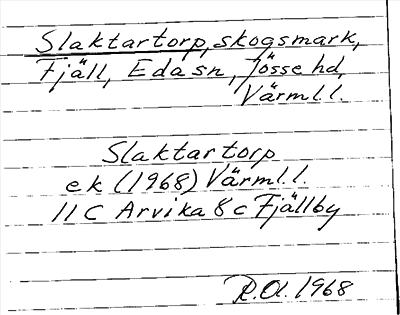 Slaktartorp, skogsmark,
Fjäll, Eda sn, Jösse hd,
Värml. l.
Slaktartorp
ek (1968) Värml. l.
11 C Arvika 8 c Fjällby
R.O. 1968